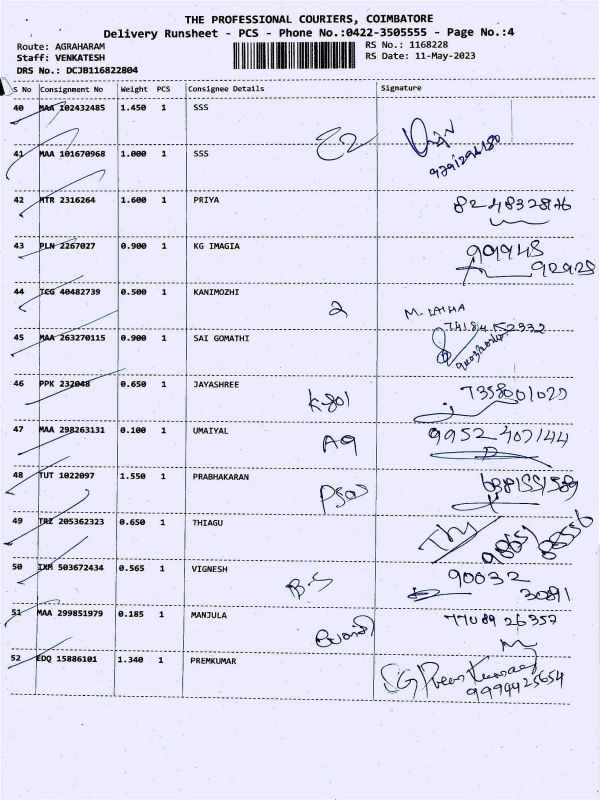 THE PROFESSIONAL COURIERS, COIMBATORE
Delivery Runsheet - PCS - Phone No.:0422-3505555 - Page No.:4
Route: AGRAHARAM
RS No.: 1168228
Staff: VENKATESH
RS Date: 11-May-2023
DRS No.: DCJB116822804
S No Consignment No Weight PCS Consignee Details Signature
40 MAA 102432485 1.450 1 SSS
41 MAA 101670968 1.000 1 SSS
42 MTR 2316264 1.600 1 PRIYA
43 PLN 2267027 0.900 1 KG IMAGIA
44 TCG 40482739 0.500 1 KANIMOZHI 2
45 MAA 263270115 0.900 1 SAI GOMATHI
46 PPK 232048 0.650 1 JAYASHREE
47 MAA 298263131 0.100 1 UMAIYAL A9
48 TUT 1022097 1.550 1 PRABHAKARAN
49 TRZ 205362323 0.650 1 THIAGU
50 IXM 503672434 0.565 1 VIGNESH B-S 90032
30891
51 MAA 299851979 0.185 1 MANJULA
52 EDQ 15886101 1.340 1 PREMKUMAR
9994425654